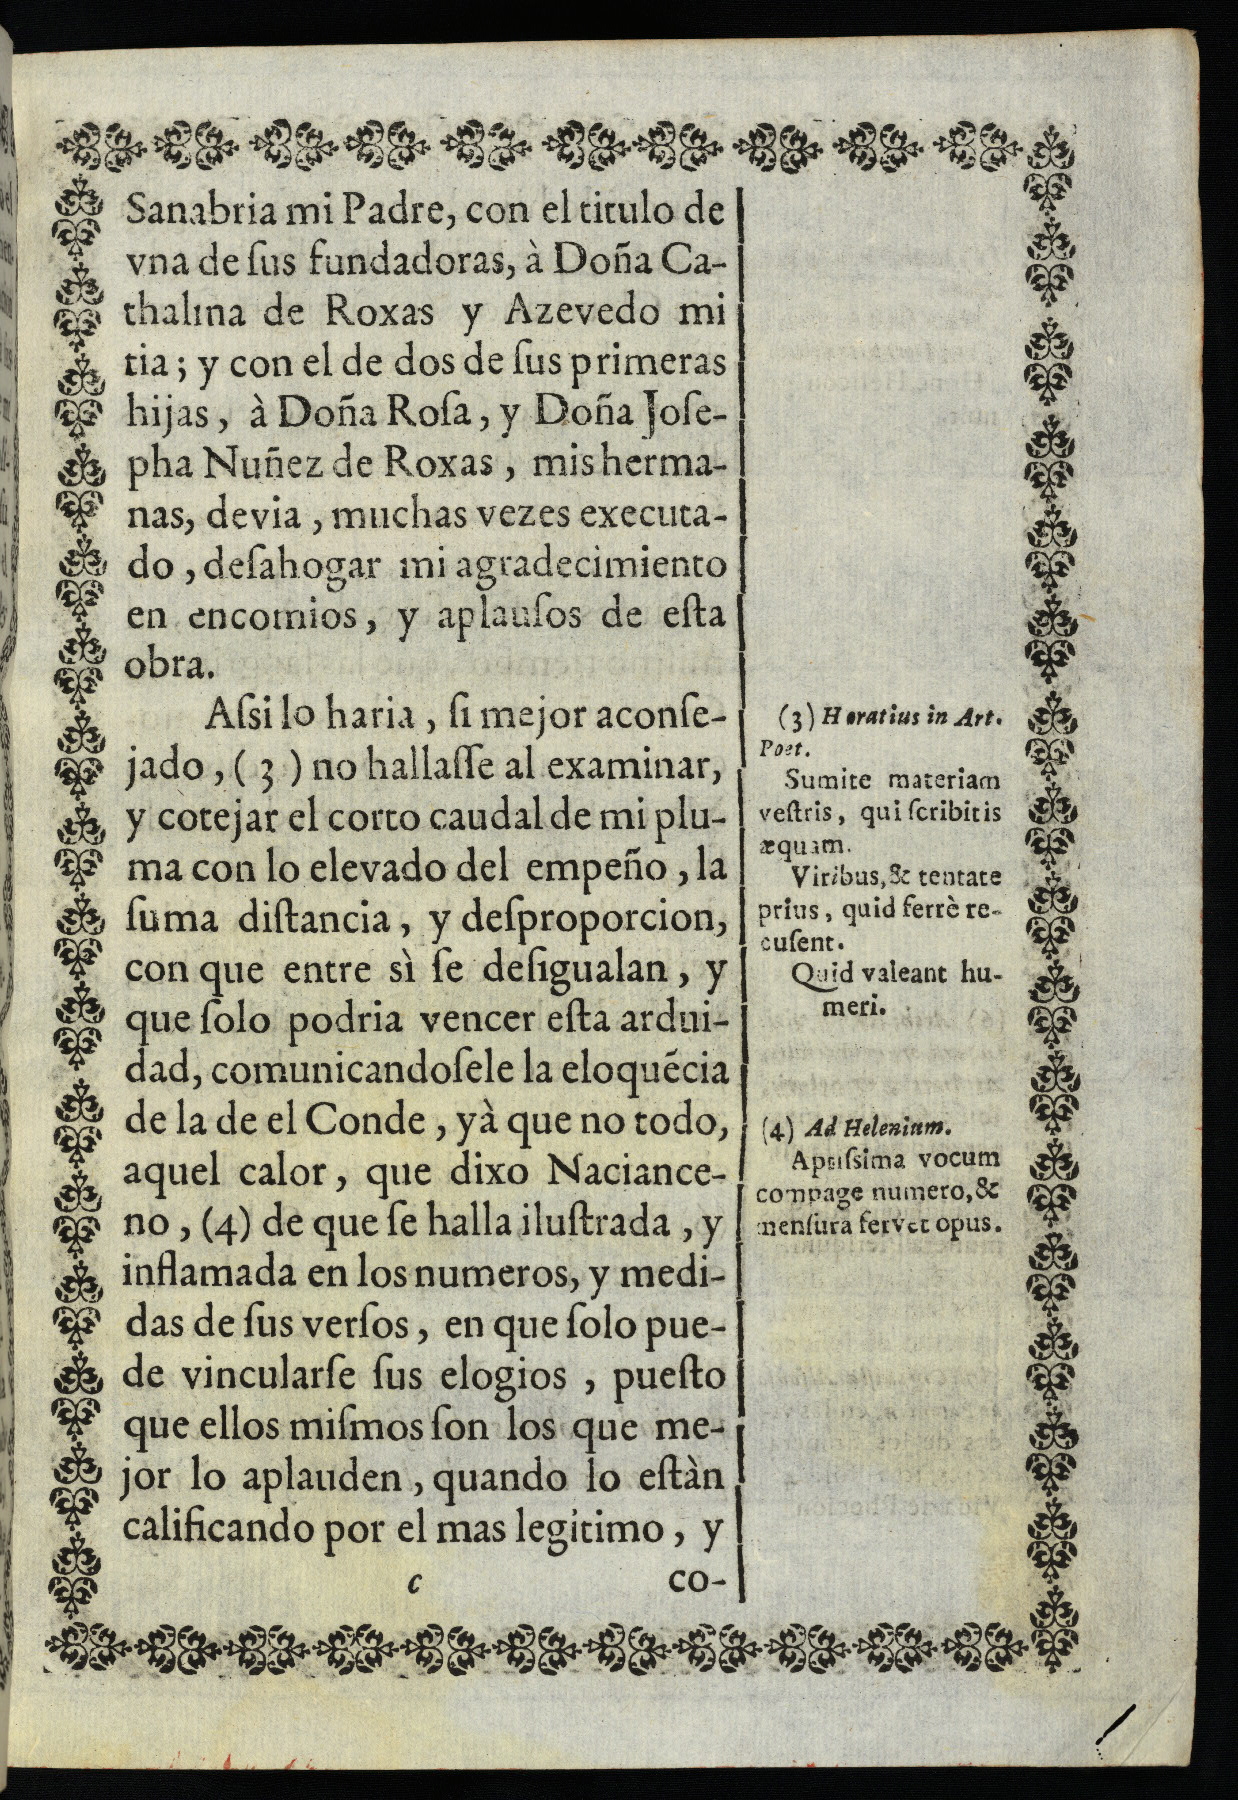 Sanabria mi Padre, con el titulo de
vna de ſus fundadoras, à Doña Ca-
thalina de Roxas y Azevedo mi
tia; y con el de dos de ſus primeras
hijas, à Doña Roſa, y Doña Joſe-
pha Nuñez de Roxas, mis herma-
nas, devia, muchas vezes executa-
do, deſahogar mi agradecimiento
en encomios, y aplauſos de eſta
obra.
Aſsi lo haria, ſi mejor aconſe-
jado, (3) no hallaſſe al examinar,
y cotejar el corto caudal de mi plu-
ma con lo elevado del empeño, la
ſuma diſtancia, y deſproporcion,
con que entre sì ſe deſigualan, y
que ſolo podria vencer eſta ardui-
dad, comunicandoſele la eloquẽcia
de la de el Conde, yà que no todo,
aquel calor, que dixo Naciance-
no, (4) de que ſe halla iluſtrada, y
inflamada en los numeros, y medi-
das de ſus verſos, en que ſolo pue-
de vincularſe ſus elogios, pueſto
que ellos miſmos ſon los que me-
jor lo aplauden, quando lo eſtàn
calificando por el mas legitimo, y
c
co-
(3) Horatius in Art.
Poet.
Sumite materiam
veſtris, qui ſcribitis
æquam.
Viribus, & tentate
prius, quid ferrè re-
cuſent.
Quid valeant hu-
meri.
(4) Ad Helenium.
Aptiſsima vocum
compage numero, &
menſura fervet opus.